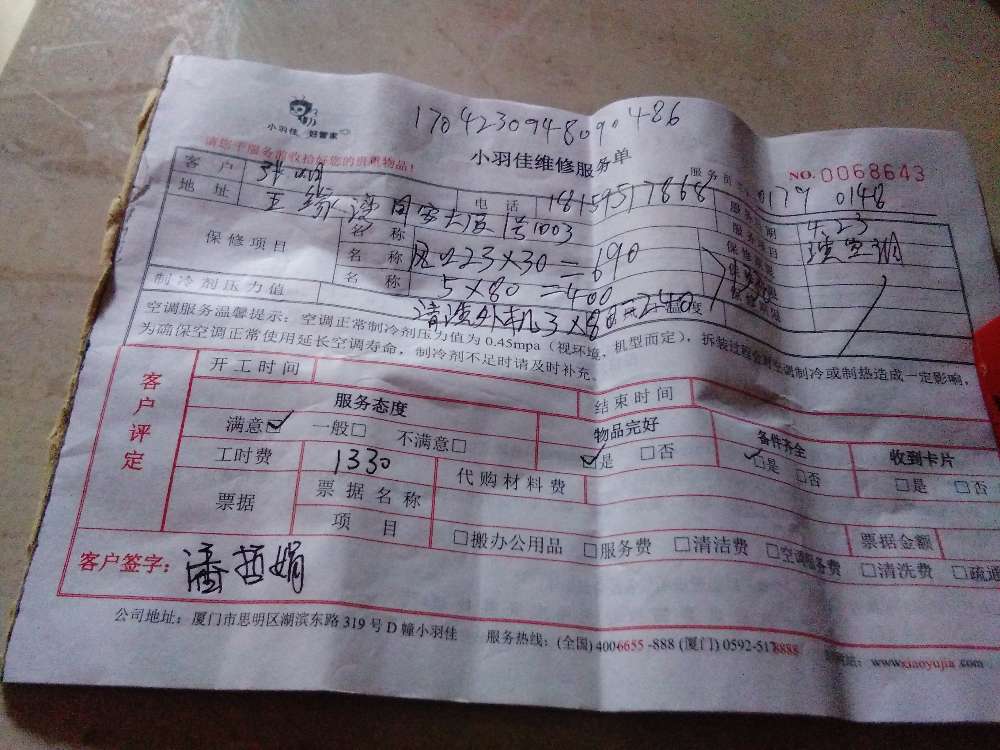 小羽佳 好管家
1704230948090486
请您于服务前收拾好您的贵重物品!
小羽佳维修服务单
NO. 0068643
客户 电话 18159517868 0179 0148
地址 国安大厦1号1003 服务日期 4.23
保修项目 名称 服务项目
名称 风口23×30=690 保修期限
名称 5×80=400 保修期限
制冷剂压力值 清洗外机3×80=240 温度
空调服务温馨提示:空调正常制冷剂压力值为 0.45mpa(视环境、机型而定),拆装过程会对空调制冷或制热造成一定影响,
为确保空调正常使用延长空调寿命,制冷剂不足时请及时补充。
客户评定
开工时间 结束时间
服务态度 物品完好 备件齐全 收到卡片
满意☑ 一般□ 不满意□ ☑是 □否 ☑是 □否 □是 □否
工时费 1330 代购材料费
票据 票据名称 票据金额
项目 □搬办公用品 □服务费 □清洁费 □空调服务费 □清洗费 □疏通
客户签字: 潘哲娟
公司地址:厦门市思明区湖滨东路 319 号 D 幢小羽佳 服务热线:(全国) 4006655-888 (厦门) 0592-5178888 网站:www.xiaoyujia.com